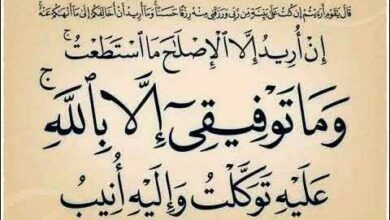 قَالَ يَٰقَوْمِ أَرَءَيْتُمْ إِن كُنتُ عَلَىٰ بَيِّنَةٍ مِّن رَّبِّى وَرَزَقَنِى مِنْهُ رِزْقًا حَسَنًا وَمَآ أُرِيدُ أَنْ أُخَالِفَكُمْ إِلَىٰ مَآ أَنْهَىٰكُمْ عَنْهُ
إِنْ أُرِيدُ إِلَّا ٱلْإِصْلَٰحَ مَا ٱسْتَطَعْتُ ۚ
وَمَا تَوْفِيقِىٓ إِلَّا بِٱللَّهِ ۚ
عَلَيْهِ تَوَكَّلْتُ وَإِلَيْهِ أُنِيبُ